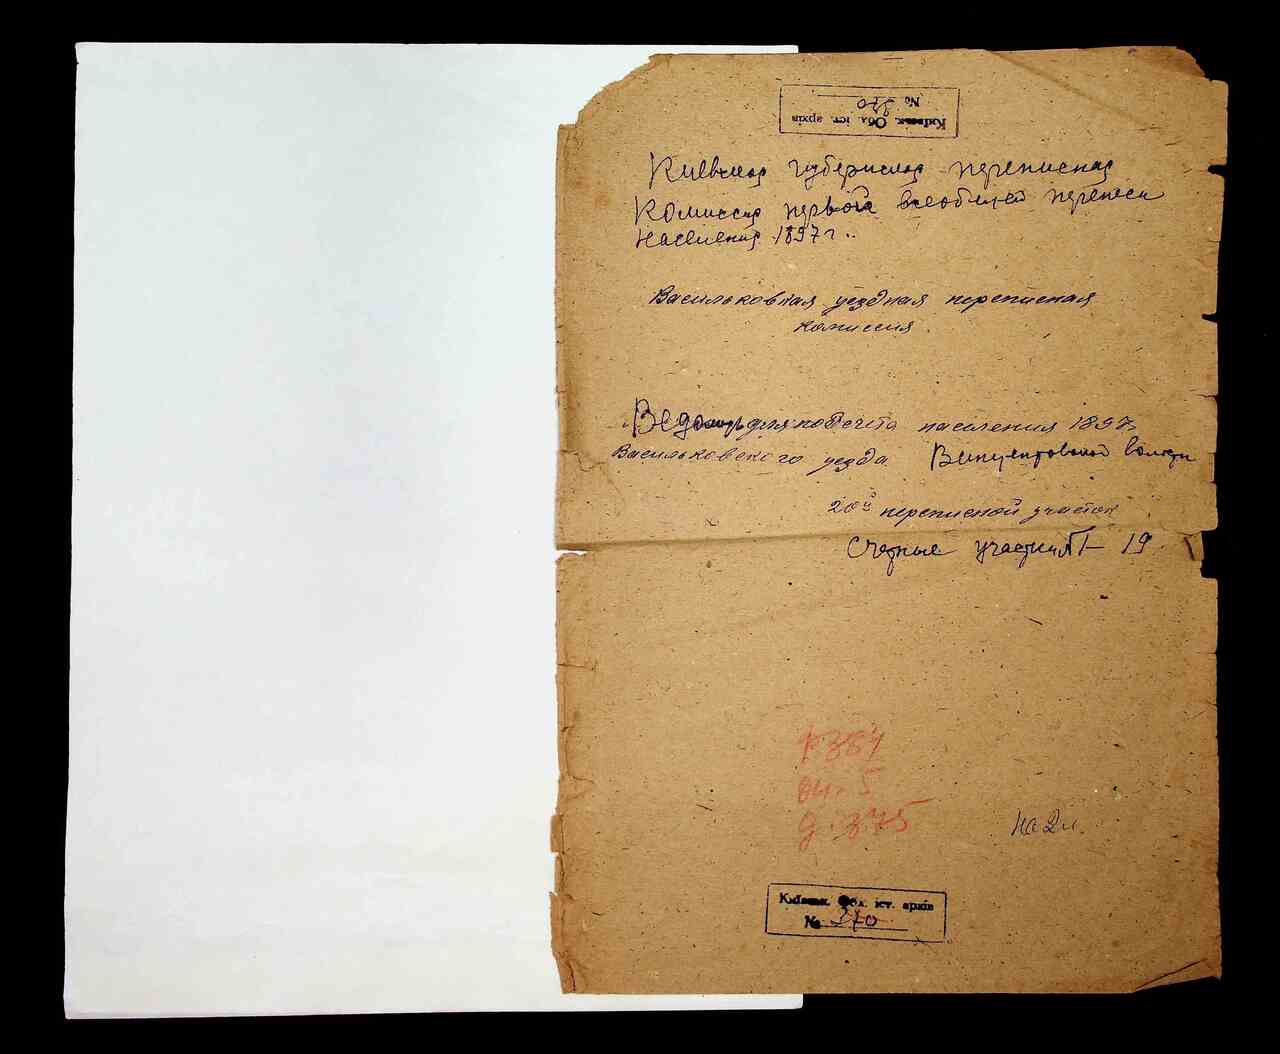 Київськ. Обл. іст. архів
№ 370
Киевская губернская переписная
Комиссия первой всеобщей переписи
населения 1897 г.
Васильковская уездная переписная
комиссия.
Ведомость для подсчета населения 1897
Васильковского уезда Винцентовской волости
20й переписной участок
Счетные участки 1-19
ф 384
оп. 5
д. 375
на 2 л.
Київськ. Обл. іст. архів
№ 370